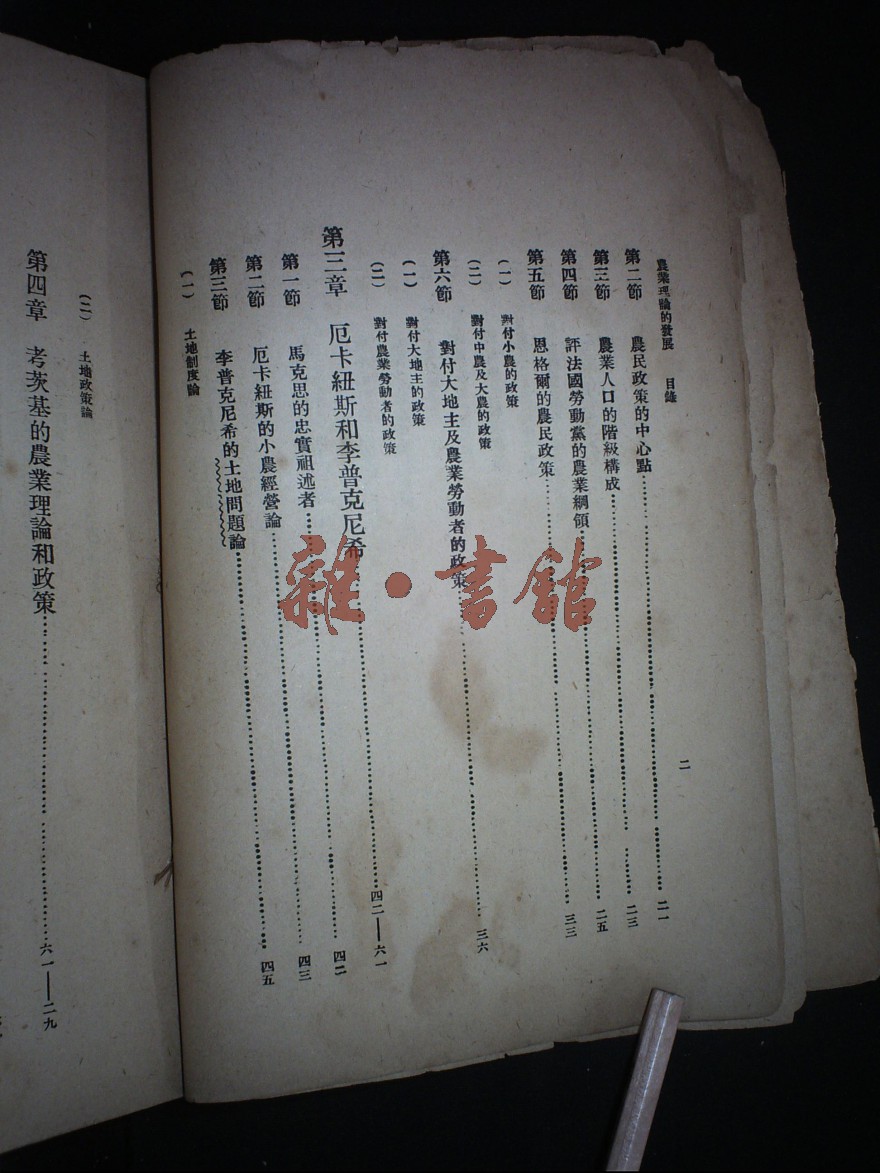 農業理論的發展 目錄
二
第二節 農民政策的中心點 二一
第三節 農業人口的階級構成 二三
第四節 評法國勞動黨的農業綱領 二五
第五節 恩格爾的農民政策 三三
(一) 對付小農的政策
(二) 對付中農及大農的政策
第六節 對付大地主及農業勞動者的政策 三六
(一) 對付大地主的政策
(二) 對付農業勞動者的政策
第三章 厄卡紐斯和李普克尼希 四二——六一
第一節 馬克思的忠實祖述者 四二
第二節 厄卡紐斯的小農經營論 四三
第三節 李普克尼希的土地問題論 四五
(一) 土地制度論
(二) 土地政策論
第四章 考茨基的農業理論和政策 六一——二九
雜·書館